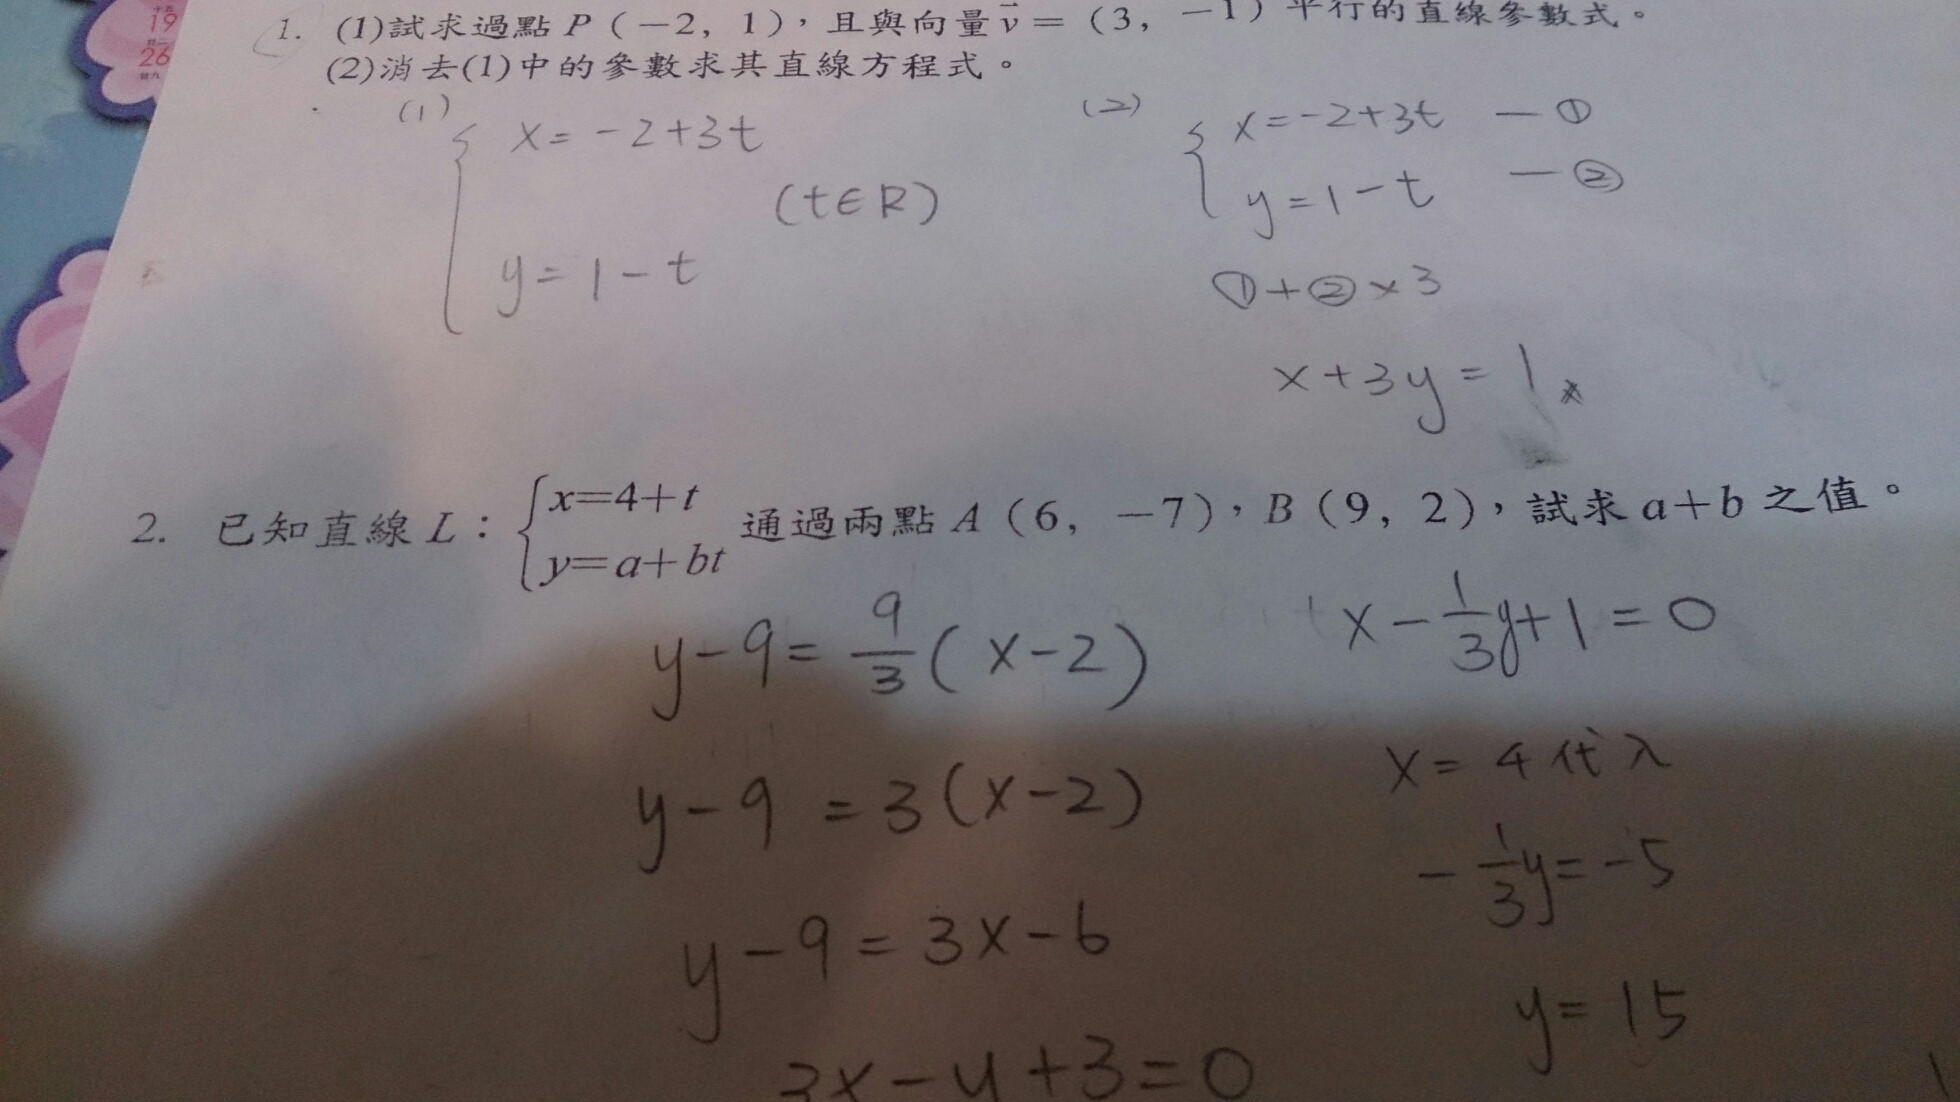 19
26
1. (1)試求過點 P（－2，1），且與向量 v⃗＝（3，－1）平行的直線參數式。
(2)消去(1)中的參數求其直線方程式。
(1)
x=-2+3t
(t∈R)
y=1-t
(2)
x=-2+3t —①
y=1-t —②
①+②×3
x+3y=1
2. 已知直線 L：{x=4+t
y=a+bt 通過兩點 A（6，－7），B（9，2），試求 a＋b 之值。
y-9=9/3(x-2)
y-9=3(x-2)
y-9=3x-6
3x-y+3=0
x-1/3y+1=0
x=4代入
-1/3y=-5
y=15